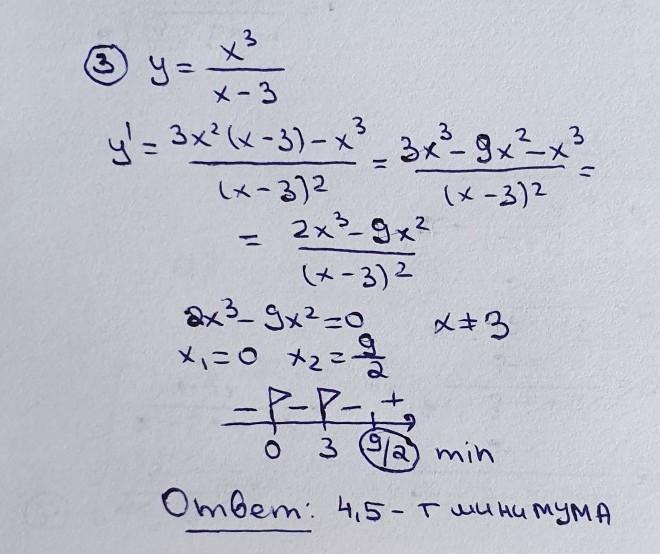 ③ y = x³/(x - 3)
y' = (3x²(x-3) - x³)/(x-3)² = (3x³ - 9x² - x³)/(x-3)² =
= (2x³ - 9x²)/(x-3)²
2x³ - 9x² = 0 x ≠ 3
x₁ = 0 x₂ = 9/2
- - - +
0 3 9/2 min
Ответ: 4,5 - т минимума